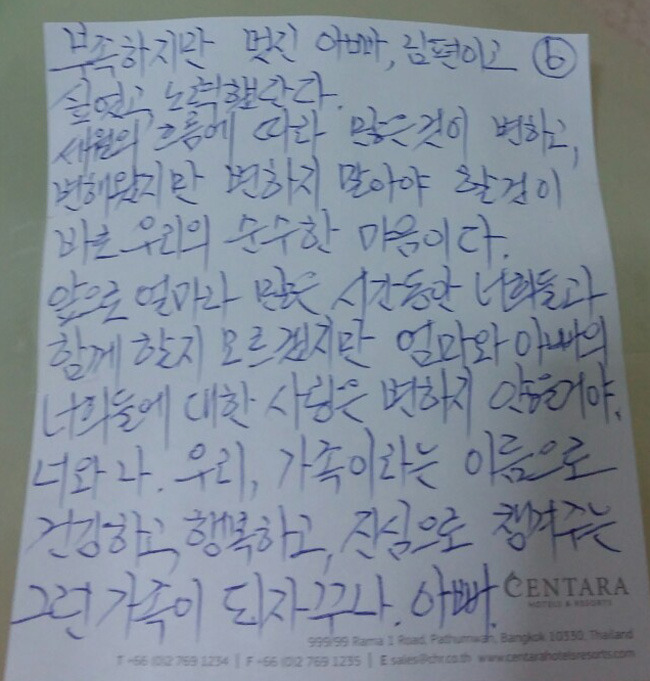 부족하지만 멋진 아빠, 남편이고 ⑥
싶었고, 노력했단다.
세월의 흐름에 따라 많은것이 변하고,
변해왔지만 변하지 말아야 할검이
바로 우리의 순수한 마음이다.
앞으로 얼마라 많은 시간동안 너희들과
함께 할지 모르겠지만 엄마와 아빠의
너희들에 대한 사랑은 변하지 않을거야.
너와 나. 우리, 가족이라는 이름으로
건강하고, 행복하고, 진심으로 챙겨주는
그런 가족이 되자꾸나. 아빠.
CENTARA
HOTELS & RESORTS
999/99 Rama 1 Road, Pathumwan, Bangkok 10330, Thailand
T +66 (0)2 769 1234 | F +66 (0)2 769 1235 | E sales@chr.co.th www.centarahotelsresorts.com